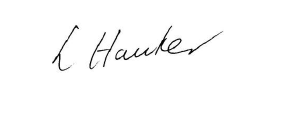 L Hawker